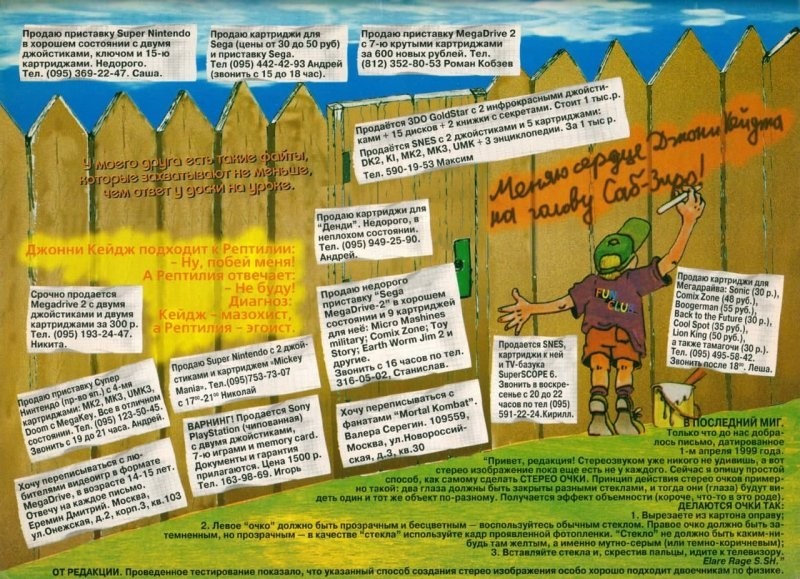 Продаю приставку Super Nintendo
в хорошем состоянии с двумя
джойстиками, ключом и 15-ю
картриджами. Недорого.
Тел. (095) 369-22-47. Саша.
Продаю картриджи для
Sega (цены от 30 до 50 руб)
и приставку Sega.
Тел (095) 442-42-93 Андрей
(звонить с 15 до 18 час).
Продаю приставку MegaDrive 2
с 7-ю крутыми картриджами
за 600 новых рублей. Тел.
(812) 352-80-53 Роман Кобзев
Продаётся 3DO GoldStar с 2 инфрокрасными джойсти-
ками + 15 дисков + 2 книжки с секретами. Стоит 1 тыс.р.
Продаётся SNES с 2 джойстиками и 5 картриджами:
DK2, KI, MK2, MK3, UMK + 3 энциклопедии. За 1 тыс р.
Тел. 590-19-53 Максим
У моего друга есть такие файты,
которые захватывают не меньше,
чем ответ у доски на уроке.
Меняю сердце Джони Кейджа
на голову Саб-Зиро!
Продаю картриджи для
"Денди". Недорого, в
неплохом состоянии.
Тел. (095) 949-25-90.
Андрей.
Джонни Кейдж подходит к Рептилии:
– Ну, побей меня!
А Рептилия отвечает:
– Не буду!
Диагноз:
Кейдж – мазохист,
а Рептилия – эгоист.
Срочно продается
Megadrive 2 с двумя
джойстиками и двумя
картриджами за 300 р.
Тел. (095) 193-24-47.
Никита.
Продаю недорого
приставку "Sega
MegaDrive-2" в хорошем
состоянии и 9 картриджей
для неё: Micro Mashines
military; Comix Zone; Toy
Story; Earth Worm Jim 2 и
другие.
Звонить с 16 часов по тел.
316-05-02, Станислав.
FUN
CLUB
Продаю картриджи для
Мегадрайва: Sonic (30 р.),
Comix Zone (48 руб.),
Boogerman (55 руб.),
Back to the Future (30 р.),
Cool Spot (35 руб.),
Lion King (50 руб.),
а также тамагочи (30 р.).
Тел. (095) 495-58-42.
Звонить после 18⁰⁰. Леша.
Продается SNES,
картриджи к ней
и TV-базука
SuperSCOPE 6.
Звонить в воскре-
сенье с 20 до 22
часов по тел (095)
591-22-24.Кирилл.
Продаю Super Nintendo с 2 джой-
стиками и картриджем «Mickey
Mania». Тел.(095)753-73-07
с 17⁰⁰-21⁰⁰ Николай
Продаю приставку Супер
Нинтендо (пр-во яп.) с 4-мя
картриджами: MK2, MK3, UMK3,
Doom с MegaKey. Все в отличном
состоянии. Тел. (095) 123-50-45.
Звонить с 19 до 21 часа. Андрей.
ВАРНИНГ! Продается Sony
PlayStation (чипованная)
с двумя джойстиками,
7-ю играми и memory card.
Документы и гарантия
прилагаются. Цена 1500 р.
Тел. 163-98-69. Игорь
Хочу переписываться с
фанатами "Mortal Kombat".
Валера Серегин. 109559,
Москва, ул.Новороссий-
ская, д.3, кв.30
Хочу переписываться с лю-
бителями видеоигр в формате
MegaDrive, в возрасте 14-15 лет.
Отвечу на каждое письмо.
Еремин Дмитрий. Москва,
ул.Онежская, д.2, корп.3, кв.103
В ПОСЛЕДНИЙ МИГ.
Только что до нас добра-
лось письмо, датированное
1-м апреля 1999 года.
"Привет, редакция! Стереозвуком уже никого не удивишь, а вот
стерео изображение пока еще есть не у каждого. Сейчас я опишу простой
способ, как самому сделать СТЕРЕО ОЧКИ. Принцип действия стерео очков пример-
но такой: два глаза должны быть закрыты разными стеклами, и тогда они (глаза) будут ви-
деть один и тот же объект по-разному. Получается эффект объемности (короче, что-то в это роде).
ДЕЛАЮТСЯ ОЧКИ ТАК:
1. Вырезаете из картона оправу;
2. Левое "очко" должно быть прозрачным и бесцветным – воспользуйтесь обычным стеклом. Правое очко должно быть за-
темненным, но прозрачным – в качестве "стекла" используйте кадр проявленной фотопленки. "Стекло" не должно быть каким-ни-
будь там желтым, а именно мутно-серым (или темно-коричневым);
3. Вставляйте стекла и, скрестив пальцы, идите к телевизору.
Elare Rage S.SH."
ОТ РЕДАКЦИИ. Проведенное тестирование показало, что указанный способ создания стерео изображения особо хорошо подходит двоечникам по физике.